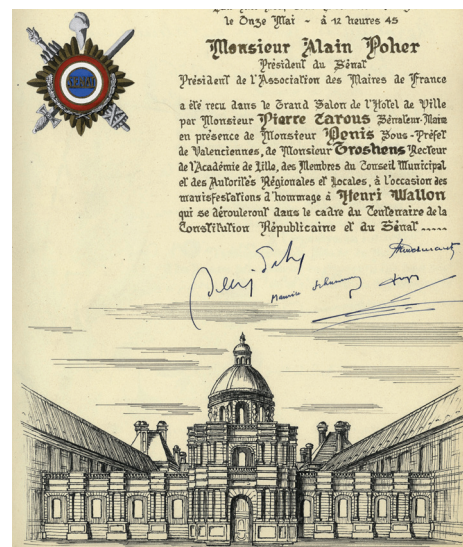 le Onze Mai - à 12 heures 45
Monsieur Alain Poher
Président du Sénat
Président de l'Association des Maires de France
a été reçu dans le Grand Salon de l'Hotel de Ville
par Monsieur Pierre Carous Sénateur-Maire
en présence de Monsieur Denis Sous-Préfet
de Valenciennes, de Monsieur Troshens Recteur
de l'Académie de Lille, des Membres du Conseil Municipal
et des Autorités Régionales et Locales, à l'occasion des
manisfestations d'hommage à Henri Wallon
qui se dérouleront dans le cadre du Centenaire de la
Constitution Républicaine et du Sénat .....
Maurice Schumann
SENAT